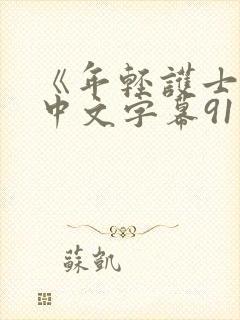 《年輕護士
中文字幕91
蘇凱